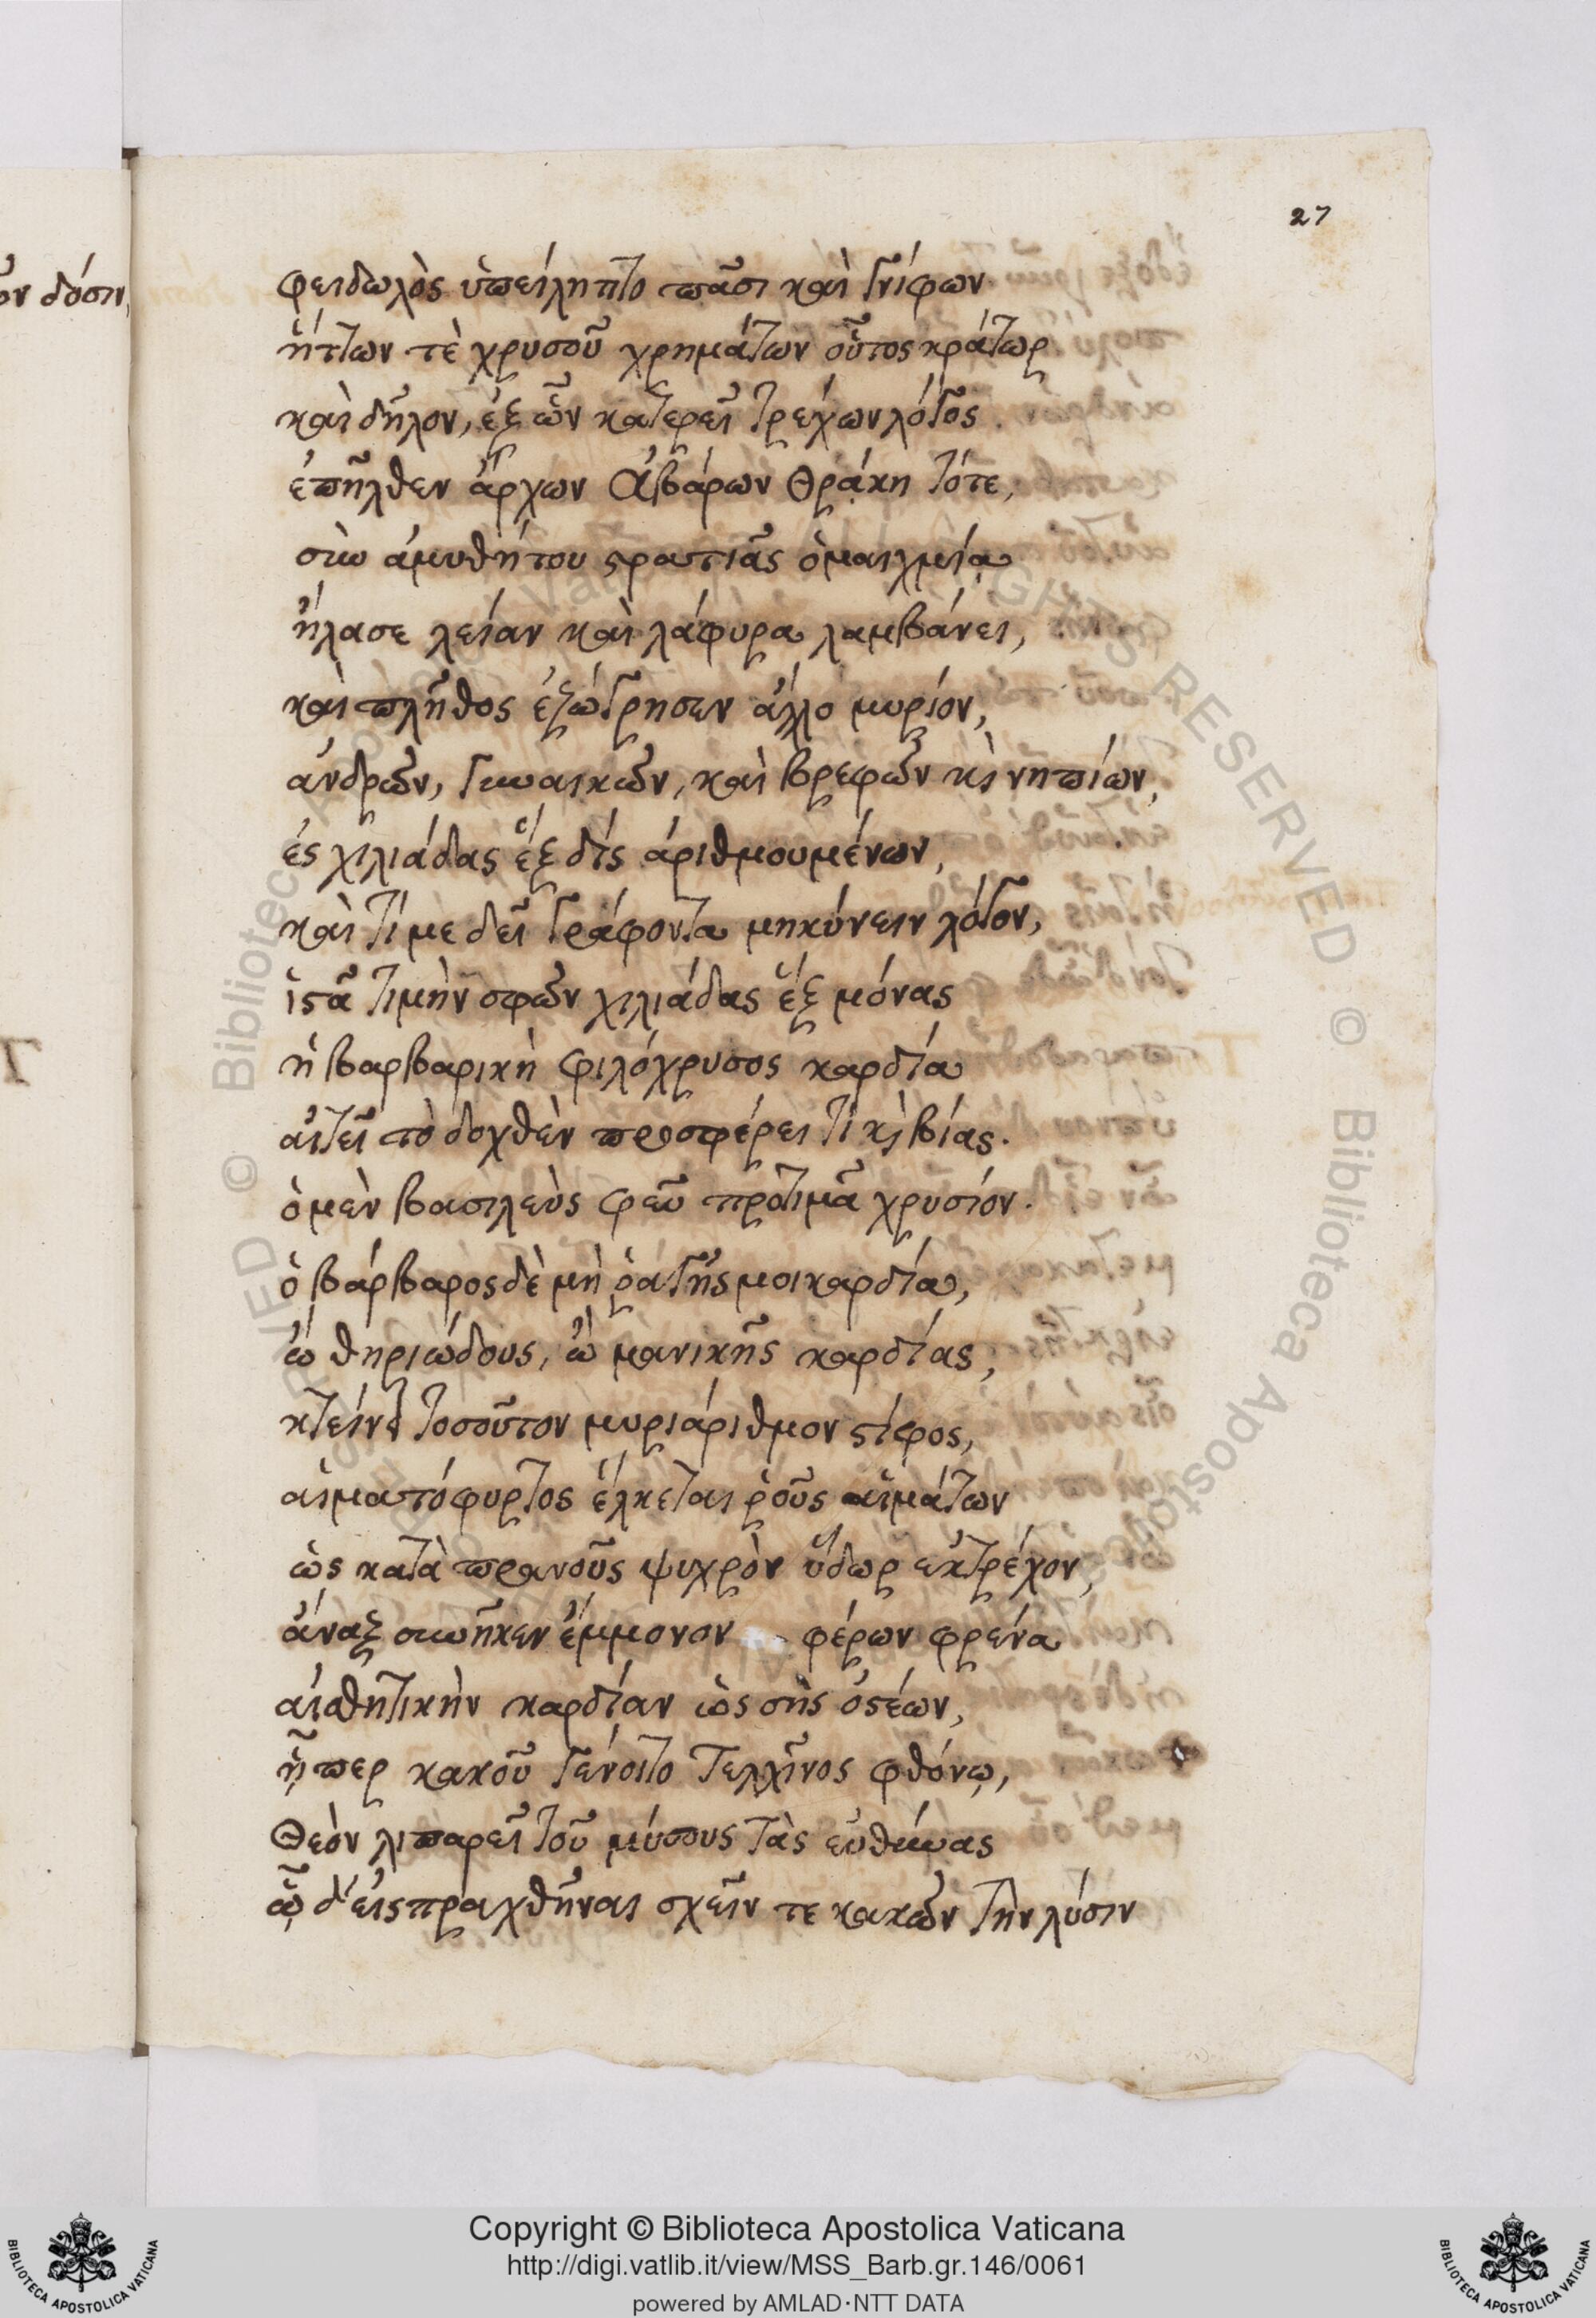 27
ον δόσιν,
φειδωλὸς ὑπείληπτο πᾶσι καὶ γνίφων
ἥττων τὲ χρυσοῦ χρημάτων οὗτος κράτωρ
καὶ δῆλον, ἐξ ὧν κατερεῖ τρέχων λόγος.
ἐπῆλθεν ἄρχων Ἀβάρων Θρᾴκη τότε,
σὺν ἀμυθήτου στρατιᾶς ὁμαιχμεία
ἤλασε λείαν καὶ λάφυρα λαμβάνει,
καὶ πλῆθος ἐζώγρησεν ἄλλο μυρίον,
ἀνδρῶν, γυναικῶν, καὶ βρεφῶν κὶ νηπίων,
ἐς χιλιάδας ἓξ δὶς ἀριθμουμένων,
καὶ τί με δεῖ γράφοντα μηκύνειν λόγον,
ἱστᾶ τιμὴν σφῶν χιλιάδας ἓξ μόνας
ἡ βαρβαρικὴ φιλόχρυσος καρδία
αἰτεῖ τὸ δοχθὲν προσφέρει τὶ κὶ βίας.
ὁ μὲν βασιλεὺς φεῦ προτιμᾶ χρυσίον.
ὁ βάρβαρος δὲ μὴ ῥαγῆς μοι καρδία,
ὢ θηριώδους, ὢ μανικῆς καρδίας,
κτείνει τοσοῦτον μυριάριθμον στίφος,
αἱματόφυρτος ἕλκεται ῥοῦς αἱμάτων
ὡς κατὰ πρανοῦς ψυχρὸν ὕδωρ ἐκτρέχον,
ἄναξ συνῆκεν ἔμμονον φέρων φρένα
αἰσθητικὴν καρδίαν ὡς σὴς ὀστέων,
ᾗπερ κακοῦ γένοιτο Τελχῖνος φθόνῳ,
Θεὸν λιπαρεῖ τοῦ μύσους τὰς εὐθύνας
ᾧ δ' εἰσπραχθῆναι σχεῖν τε κακῶν τὴν λύσιν
Copyright © Biblioteca Apostolica Vaticana
http://digi.vatlib.it/view/MSS_Barb.gr.146/0061
powered by AMLAD·NTT DATA
BIBLIOTECA APOSTOLICA VATICANA
BIBLIOTECA APOSTOLICA VATICANA